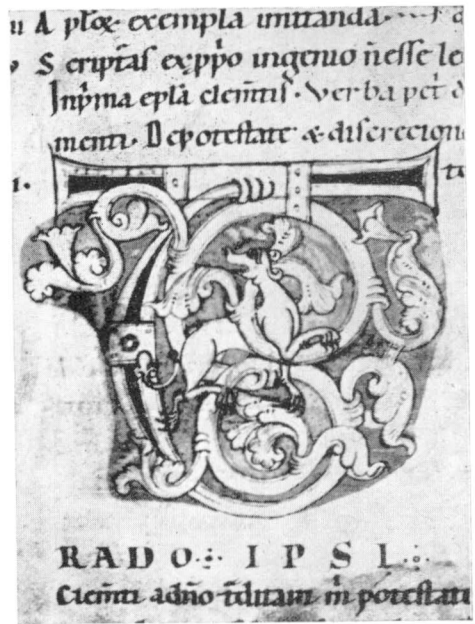 A ploꝝ exempla imitanda
S criptas exp̄p̄o ingenio n̄esse le
Inp̄ma epl̄a clem̄tis. Verba pet̄
menti. Depotestate & discrecioni
T
RADO IPSI
Clem̄ti adn̄o t̄ditam m̄ potestate